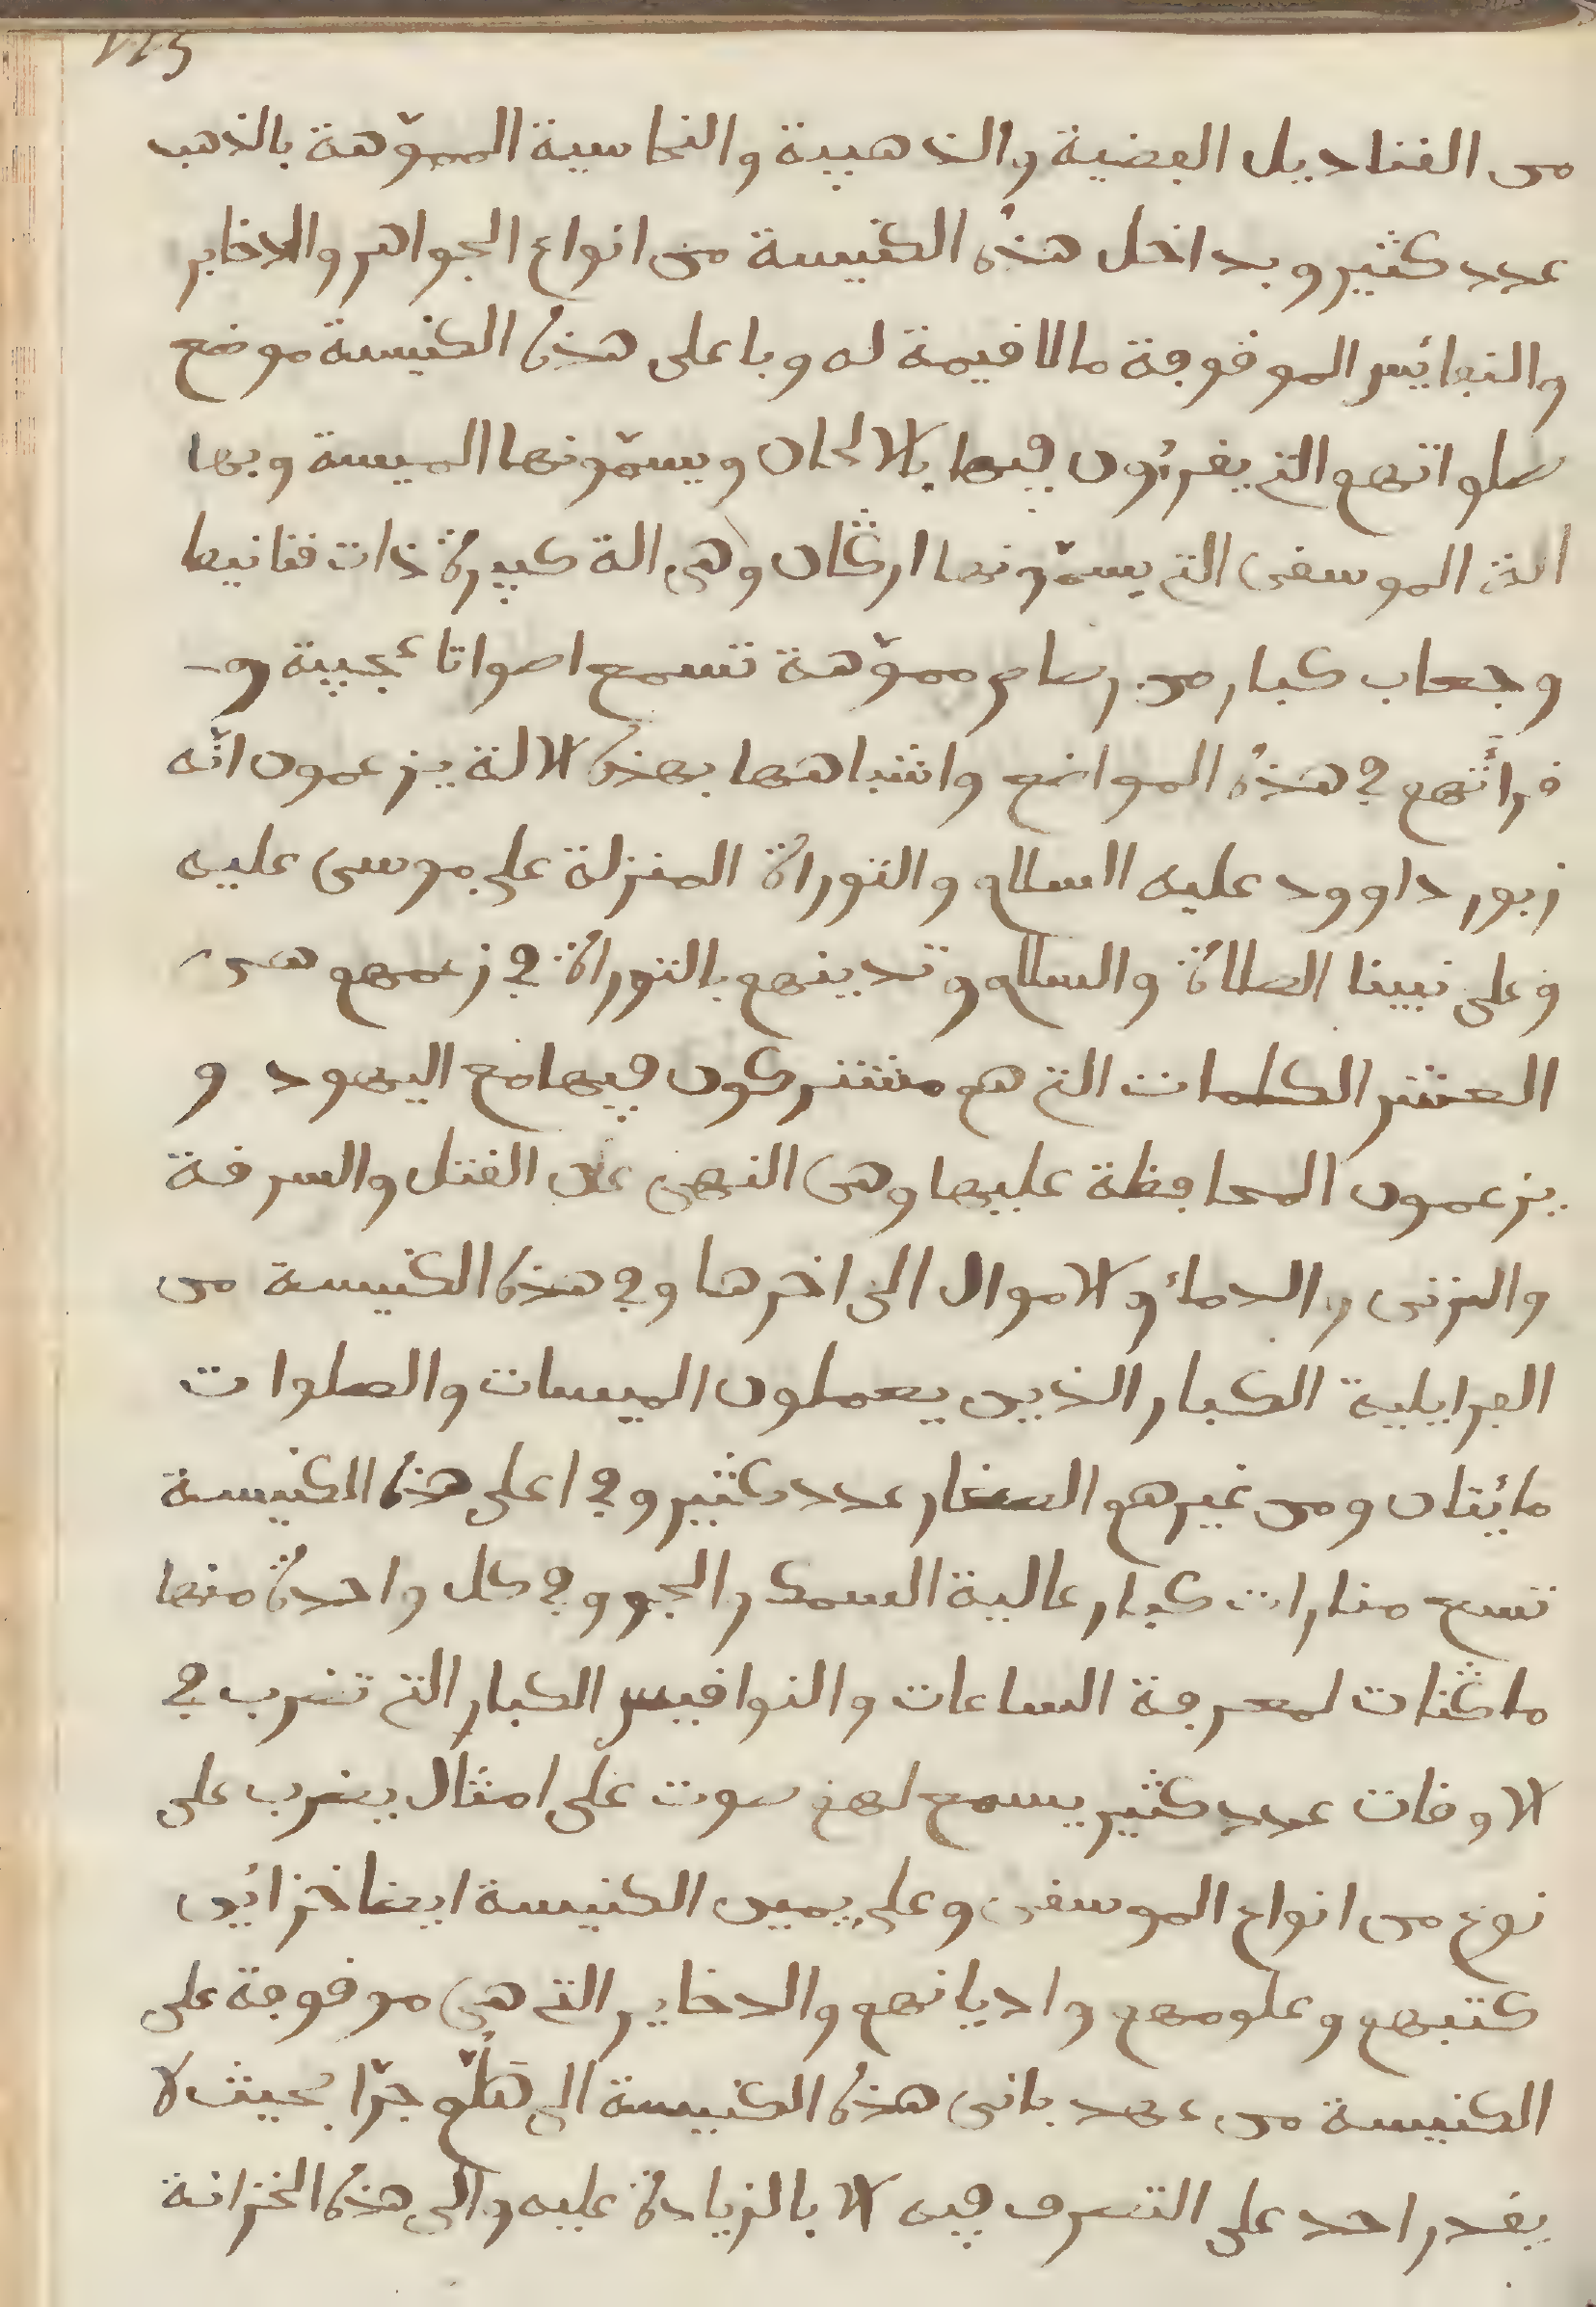 من القناديل الفضية والذهبية والنحاسية المموّهة بالذهب
عدد كثير وبداخل هذه الكنيسة من انواع الجواهر والدخاير
والنفائيس الموقوفة مالا قيمة له وباعلى هذه الكنيسة موضع
صلواتهم التي يقرئون فيها بالالحان ويسمّونها الميسة وبها
الة الموسقى التي يسمّونها اركان وهي الة كبيرة ذات قنانيط
وجعاب كبار من رصاص مموّهة تسمع اصواتا عجيبة و
قرأتهم في هذه المواضع واشباهها بهذه الالة يزعمون انّه
زبور داوود عليه السلام والتوراة المنزلة على موسى عليه
وعلى نبينا الصلاة والسلام وتدينهم بالتوراة في زعمهم هي
العشر الكلمات التي هم مشتركون فيها مع اليهود و
يزعمون المحافظة عليها وهي النهي عن القتل والسرقة
والزنى والدماء والاموال الى اخرها وفي هذه الكنيسة من
الفرايلية الكبار الذين يعملون الميسات والصلوات
مائيتان ومن غيرهم الصغار عدد كثير وفي اعلى هذه الكنيسة
تسع منارات كبار عالية السمك والجو وفي كل واحدة منها
ماكنات لمعرفة الساعات والنواقيس الكبار التي تضرب في
الاوقات عدد كثير يسمع لهم صوت على امثال يضرب على
نوع من انواع الموسقى وعلى يمين الكنيسة ايضا خزائين
كتبهم وعلومهم واديانهم والدخاير التي هي موقوفة على
الكنيسة من عهد باني هذه الكنيسة الى هلمّ جرّا بحيث لا
يقدر احد على التصرف فيه الا بالزيادة عليه والى هذه الخزانة